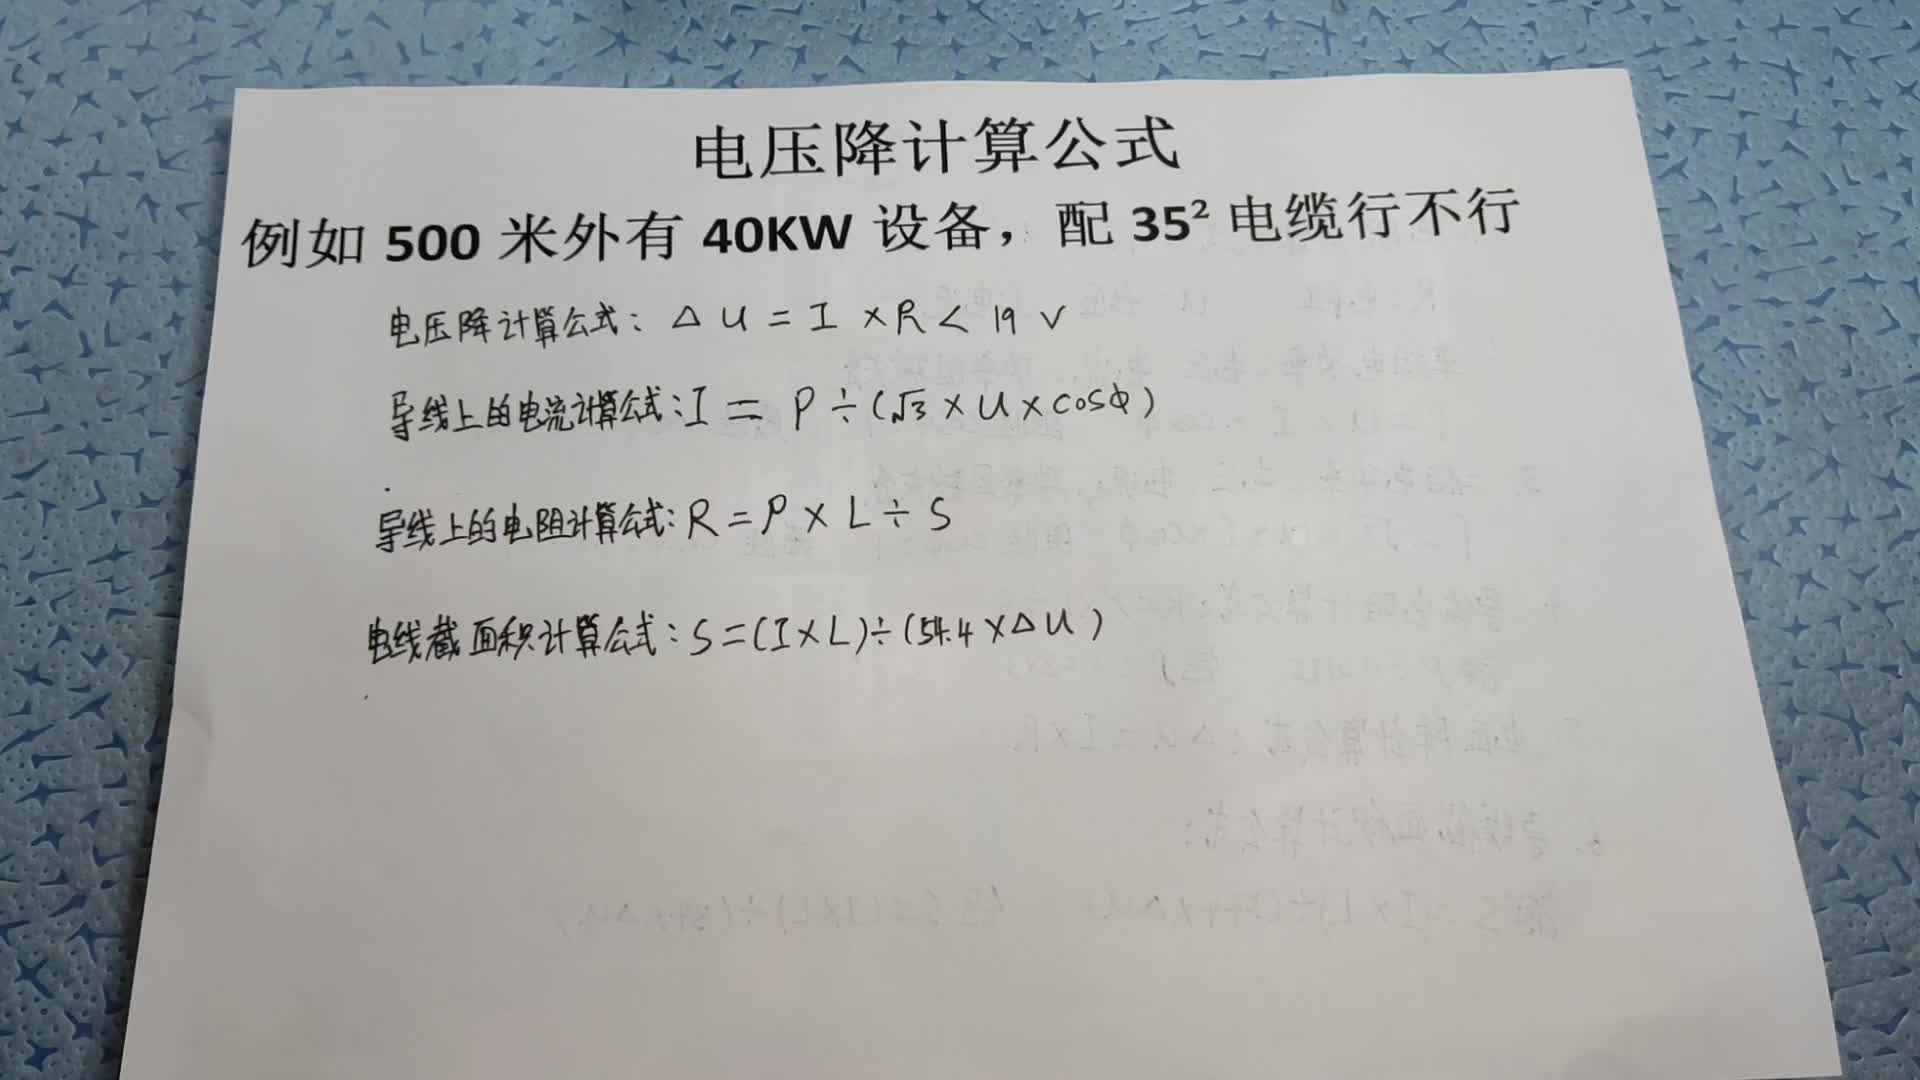 电压降计算公式
例如 500 米外有 40KW 设备，配 35² 电缆行不行
电压降计算公式：△U=I×R<19V
导线上的电流计算公式：I=P÷(√3×U×cosφ)
导线上的电阻计算公式：R=ρ×L÷S
电线截面积计算公式：S=(I×L)÷(54.4×△U)